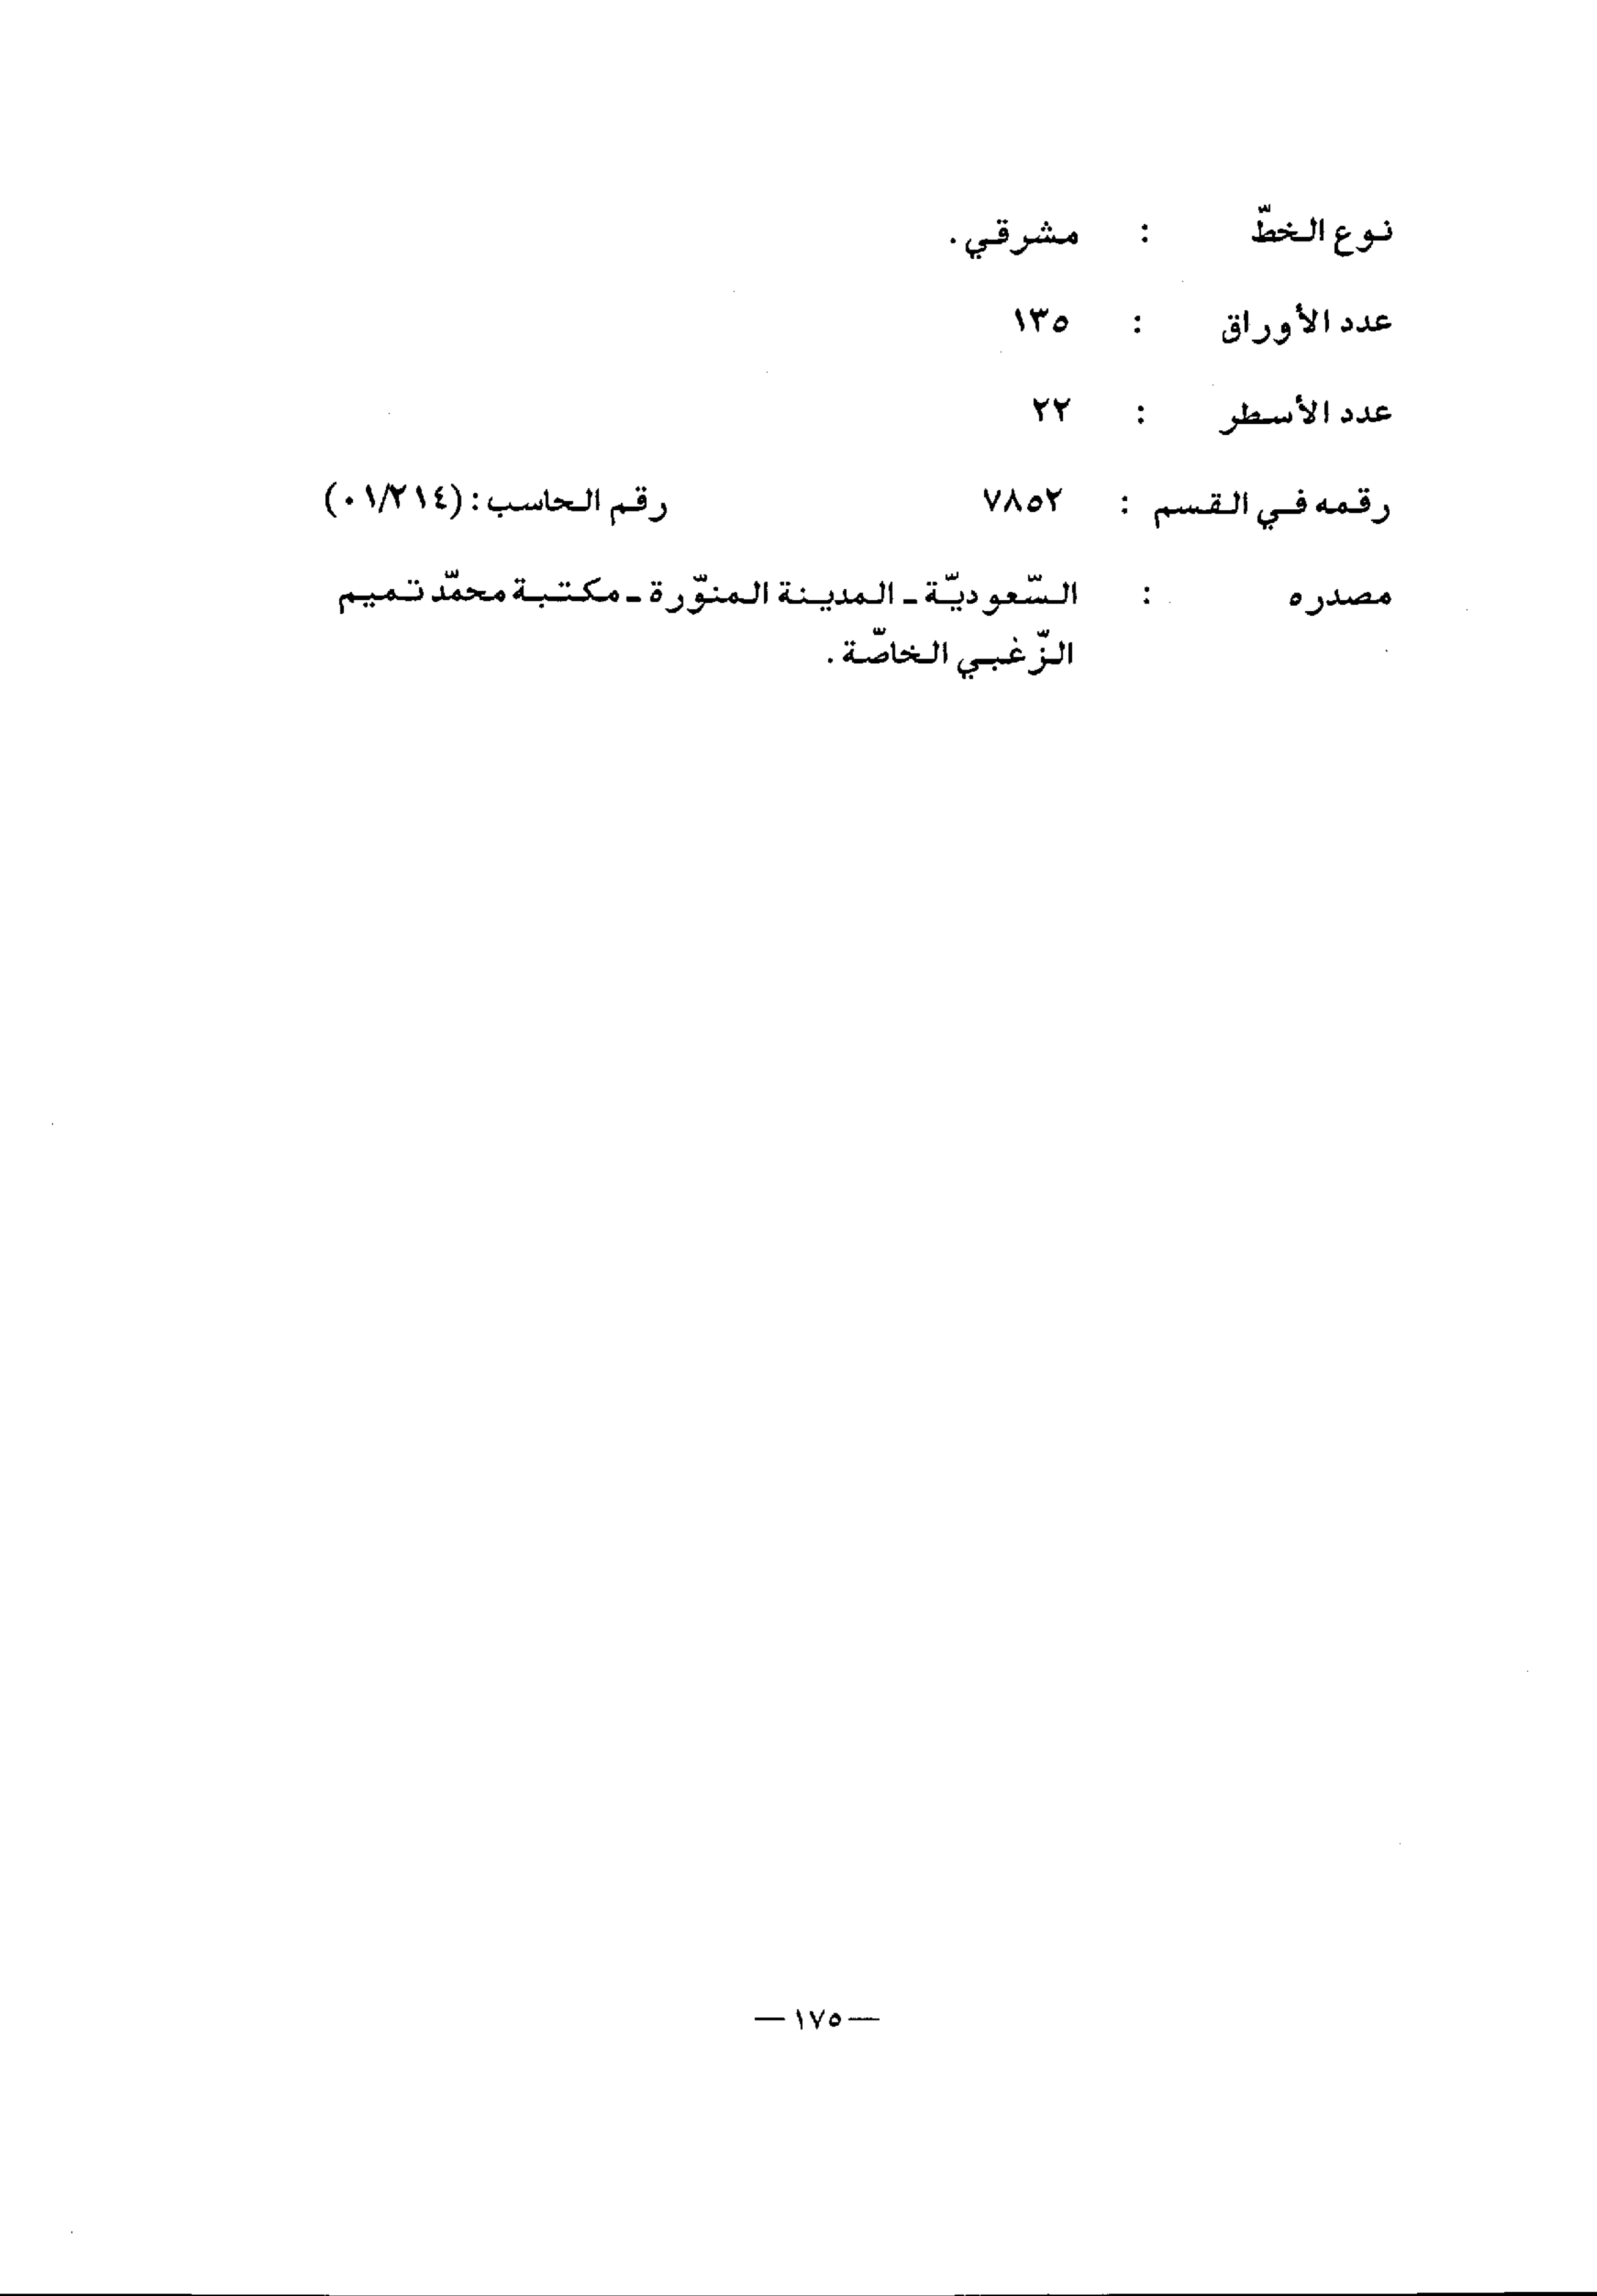 نوع الخطّ : مشرقي.
عدد الأوراق : ١٣٥
عدد الأسطر : ٢٢
رقمه في القسم : ٧٨٥٢ رقم الحاسب: (٠١/٢١٤)
مصدره : السّعوديّة - المدينة المنوّرة - مكتبة محمّد تميم
الزّغبي الخاصّة.
— ١٧٥ —